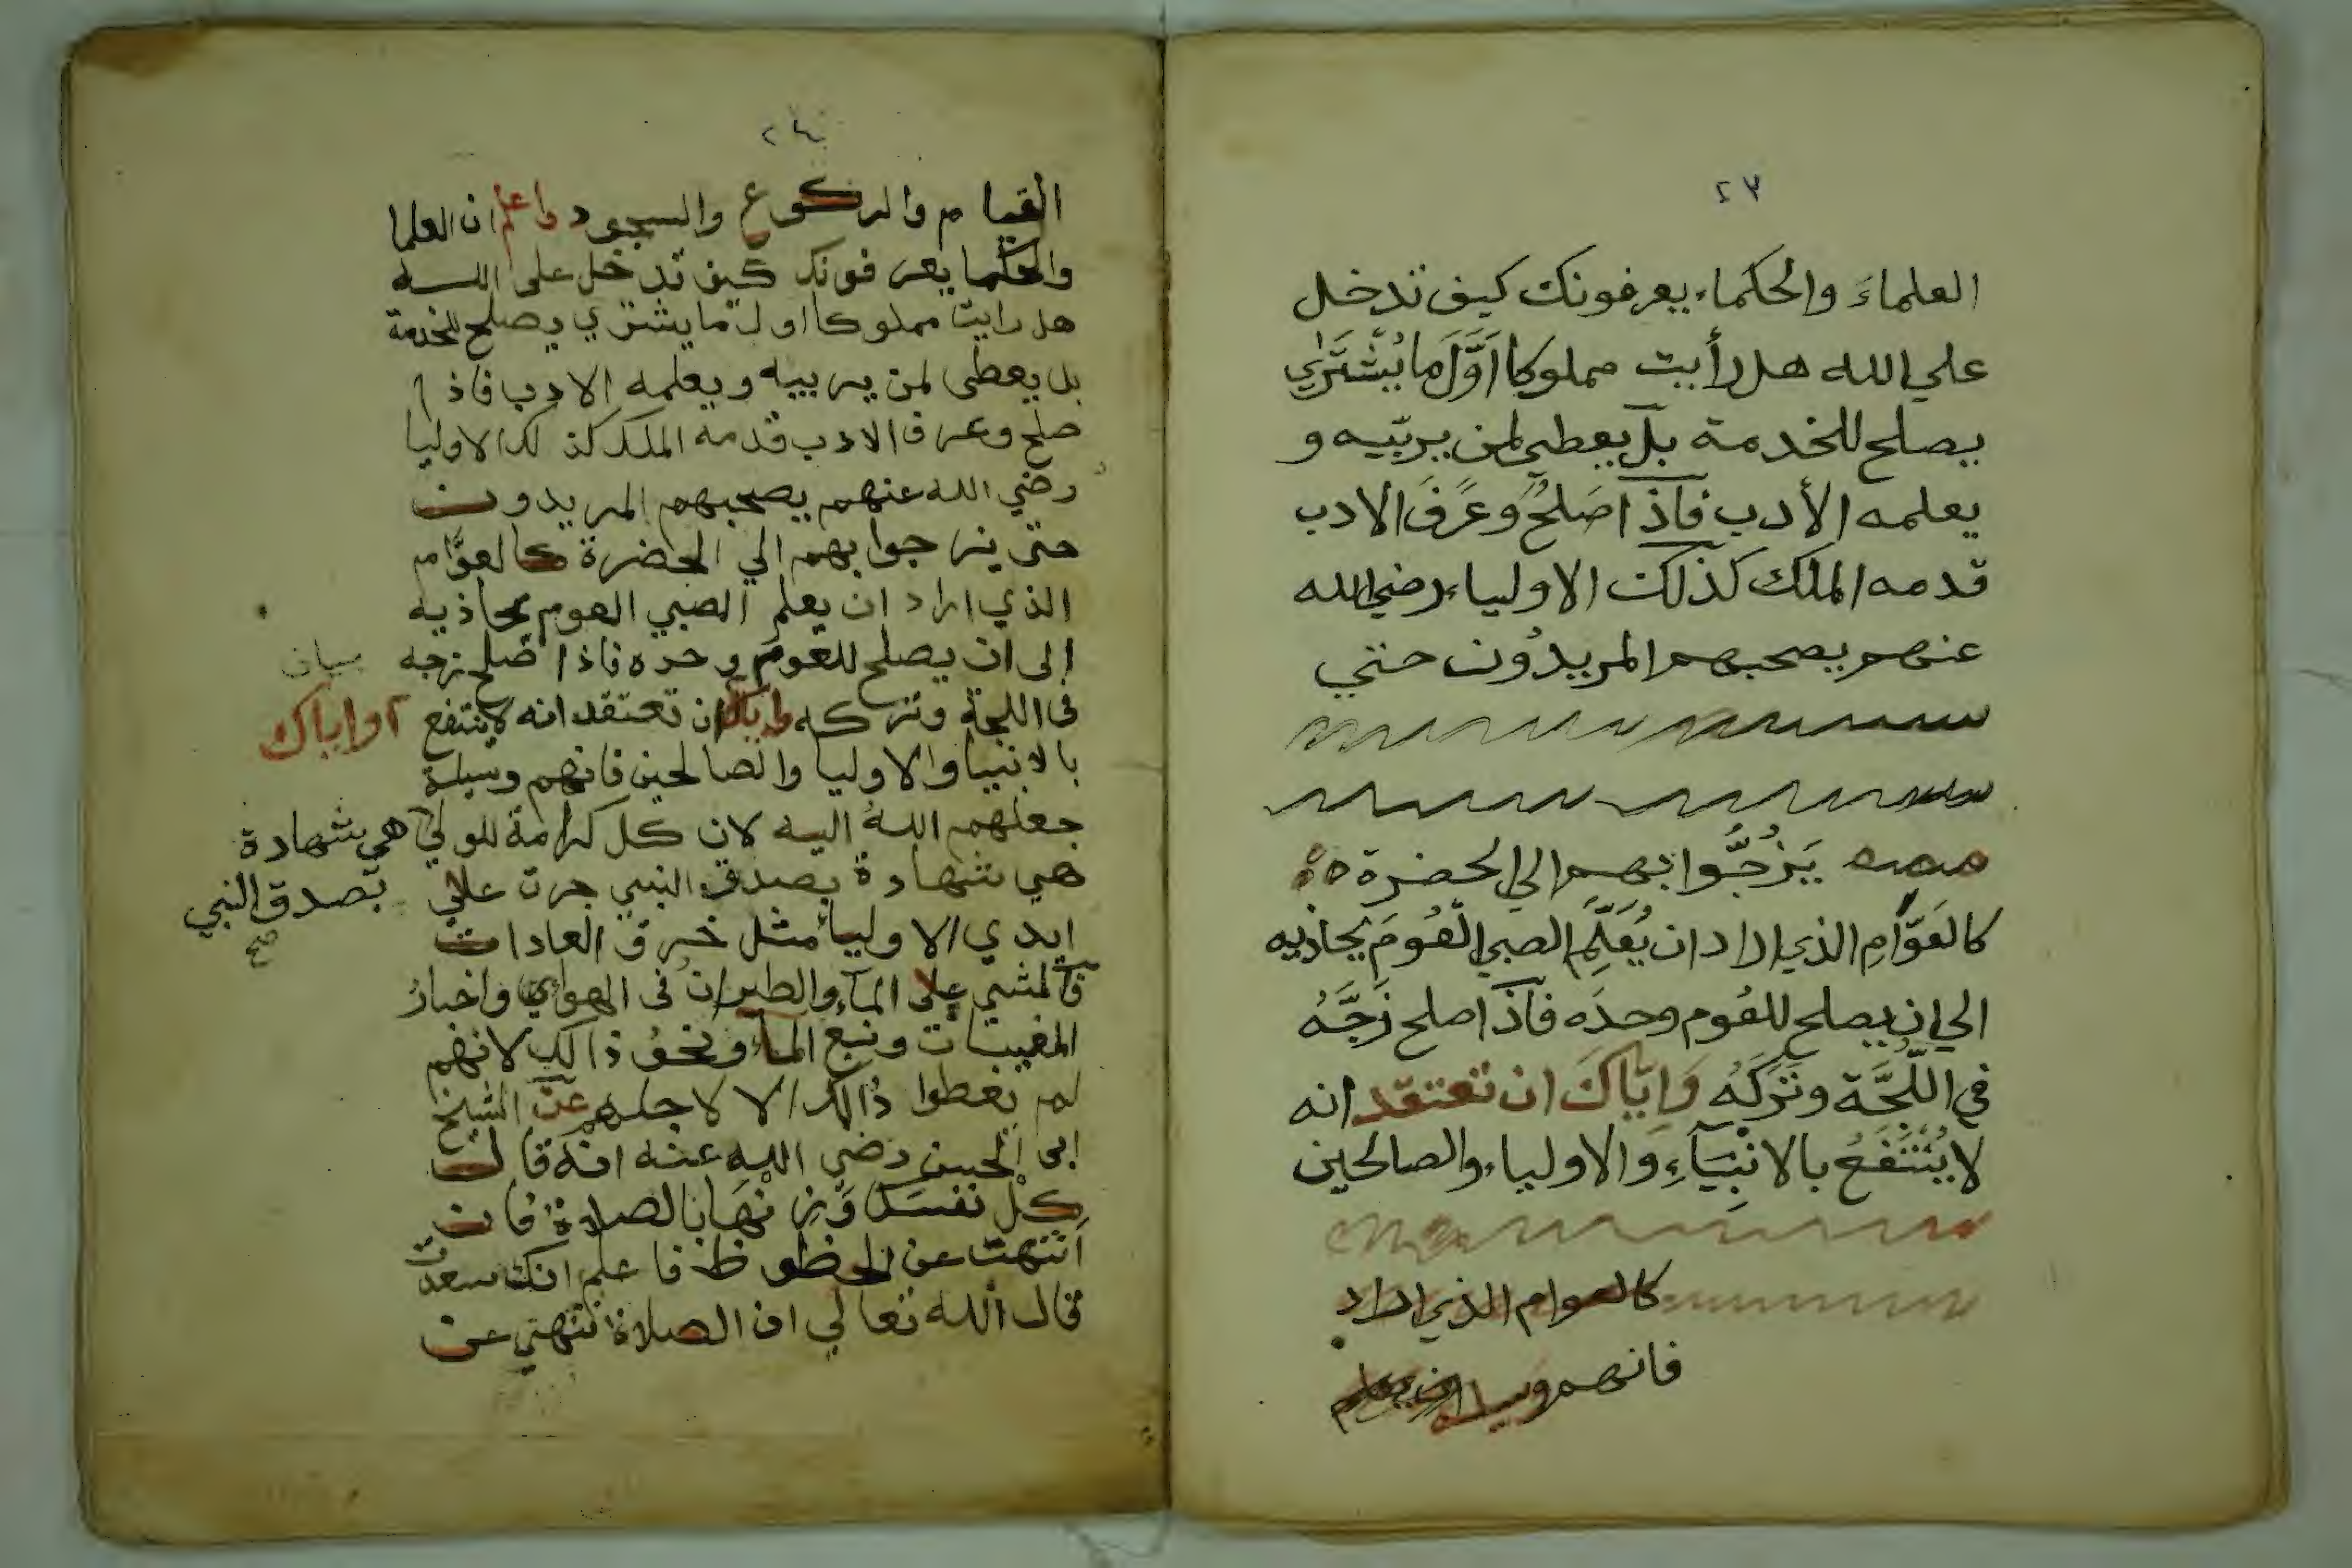 ٢٣
العلماءَ والحكماء يعرفونك كيف تدخل
علي الله هل رأيت مملوكا اَوَّلَ مَا يُشْتَرٰي
يصلح للخدمة بل يعطي لمن يربّيه و
يعلمه الأدب فاذا صَلُحَ وعَرَفَ الادب
قدمه الملك كذلك الاولياء رضي الله
عنهم يصحبهم المريدُون حتي
يَزُجُّوا بهم الي الحضرة
كالعَوَّامِ الذي اراد ان يُعَلِّمَ الصبي العُومَ يحاذيه
الي ان يصلح للعُوم وحدَه فاذا صلح زَجَّهُ
في اللُّجَّة وتَرَكَهُ وَاِيّاكَ ان تعتقد انه
لا يُنْتَفَعُ بالانْبِيَآءِ وَالاولياء والصالحين
كالعوام الذي اراد
فانهم وسيلة ان يعلم
٢٤
القيام والركوع والسجود واعلم ان العلما
والحكما يعرفونك كيف تدخل على الله
هل رايت مملوكا اول ما يشتري يصلح للخدمة
بل يعطى لمن يربيه ويعلمه الادب فاذا
صلح وعرف الادب قدمه الملك كذلك الاوليا
رضي الله عنهم يصحبهم المريدون
حتى يزجوا بهم الي الحضرة كالعوَّام
الذي اراد ان يعلم الصبي العوم يحاذيه
إلى ان يصلح للعوم وحده فاذا صلح زجه
في اللجة وتركه واياك ان تعتقد انه لا ينتفع
بيان
واياك
بالانبيا والاوليا والصالحين فانهم وسيلة
جعلهم اللهُ اليه لان كل كرامة للولي
هي شهادة بصدق النبي جرت علي
هي شهادة
بصدق النبي
صح
ايدي الاولياء مثل خرق العادات
فالمشي على المآء والطيران في الهواي واخبارُ
المغيبات ونبع المآء ونحوُ ذالك لانهم
لم يعطوا ذالك الا لاجلهم عن الشيخ
ابى الحسن رضي الله عنه انه قال
كل نفسك وَزِنْهَا بالصلاة فان
اَنتهت عن الحظوظ فاعلم انك سعدت
قال الله تعالي ان الصلاة تنهي عن